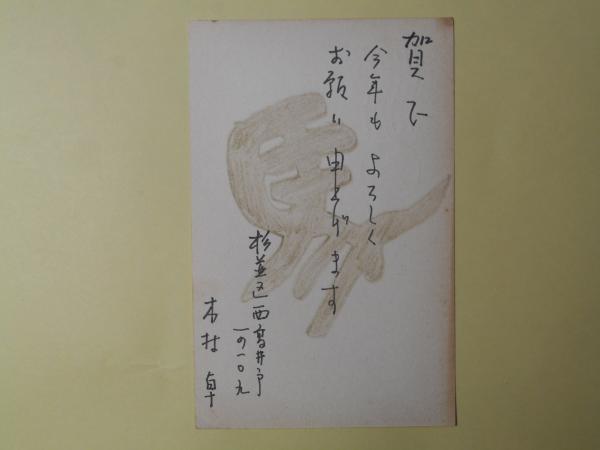 賀正
今年も よろしく
お願い申上げます
杉並区西高井戸
一の一〇九
木村 卓